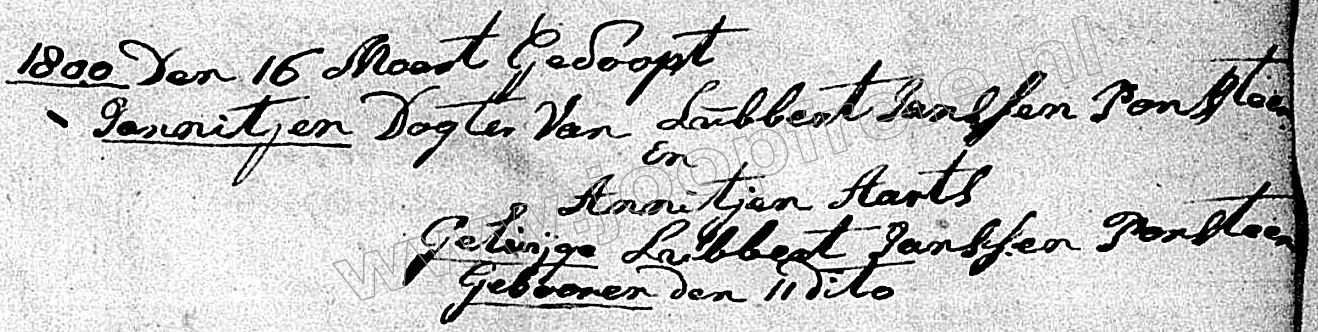 1800 Den 16 Maart Gedoopt
Jannitjen Dogter Van Lubbert Janssen Ponsteen
En
Annitjen Aarts
Getuijge Lubbert Janssen Ponsteen
Gebooren den 11 dito